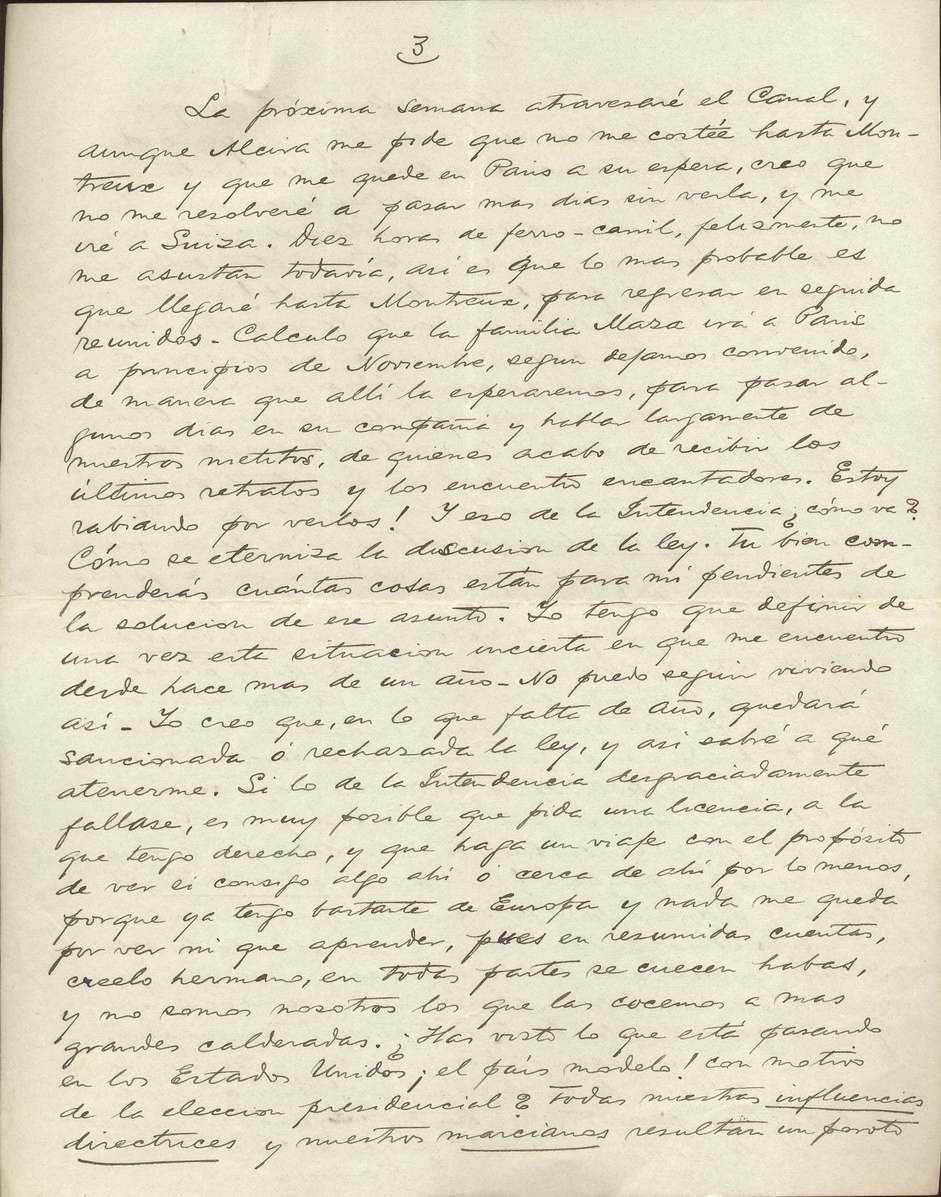 3
La próxima semana atravesaré el Canal, y
aunque Alcira me pide que no me costée hasta Mon-
treux y que me quede en Paris a su espera, creo que
no me resolveré a pasar mas dias sin verla, y me
iré a Suiza. Diez horas de ferro-carril, felizmente, no
me asustan todavía, así es que lo mas probable es
que llegaré hasta Montreux, para regresar en seguida
reunidos - Calculo que la familia Maza irá a Paris
a principios de Noviembre, segun dejamos convenido,
de manera que allí la esperaremos, para pasar al-
gunos dias en su compañia y hablar largamente de
nuestros nietitos, de quienes acabo de recibir los
últimos retratos y los encuentro encantadores. Estoy
rabiando por verlos! Y eso de la Intendencia ¿cómo va?
Cómo se eterniza la discusion de la ley. Tu bien com-
prenderás cuántas cosas están para mi pendientes de
la solucion de ese asunto. Yo tengo que definir de
una vez esta situacion incierta en que me encuentro
desde hace mas de un año - No puedo seguir viviendo
así - Yo creo que, en lo que falta de año, quedará
sancionada ó rechazada la ley, y asi sabré a qué
atenerme. Si lo de la Intendencia desgraciadamente
fallase, es muy posible que pida una licencia, a la
que tengo derecho, y que haga un viaje con el propósito
de ver si consigo algo ahi ó cerca de ahi por lo menos,
porque ya tengo bastante de Europa y nada me queda
por ver ni que aprender, pues en resumidas cuentas,
creelo hermano, en todas partes se cuecen habas,
y no somos nosotros los que las cocemos a mas
grandes calderadas. ¿Has visto lo que está pasando
en los Estados Unidos, ¡el país modelo! con motivo
de la eleccion presidencial? Todas nuestras influencias
directrices y nuestros marcianos resultan un poroto